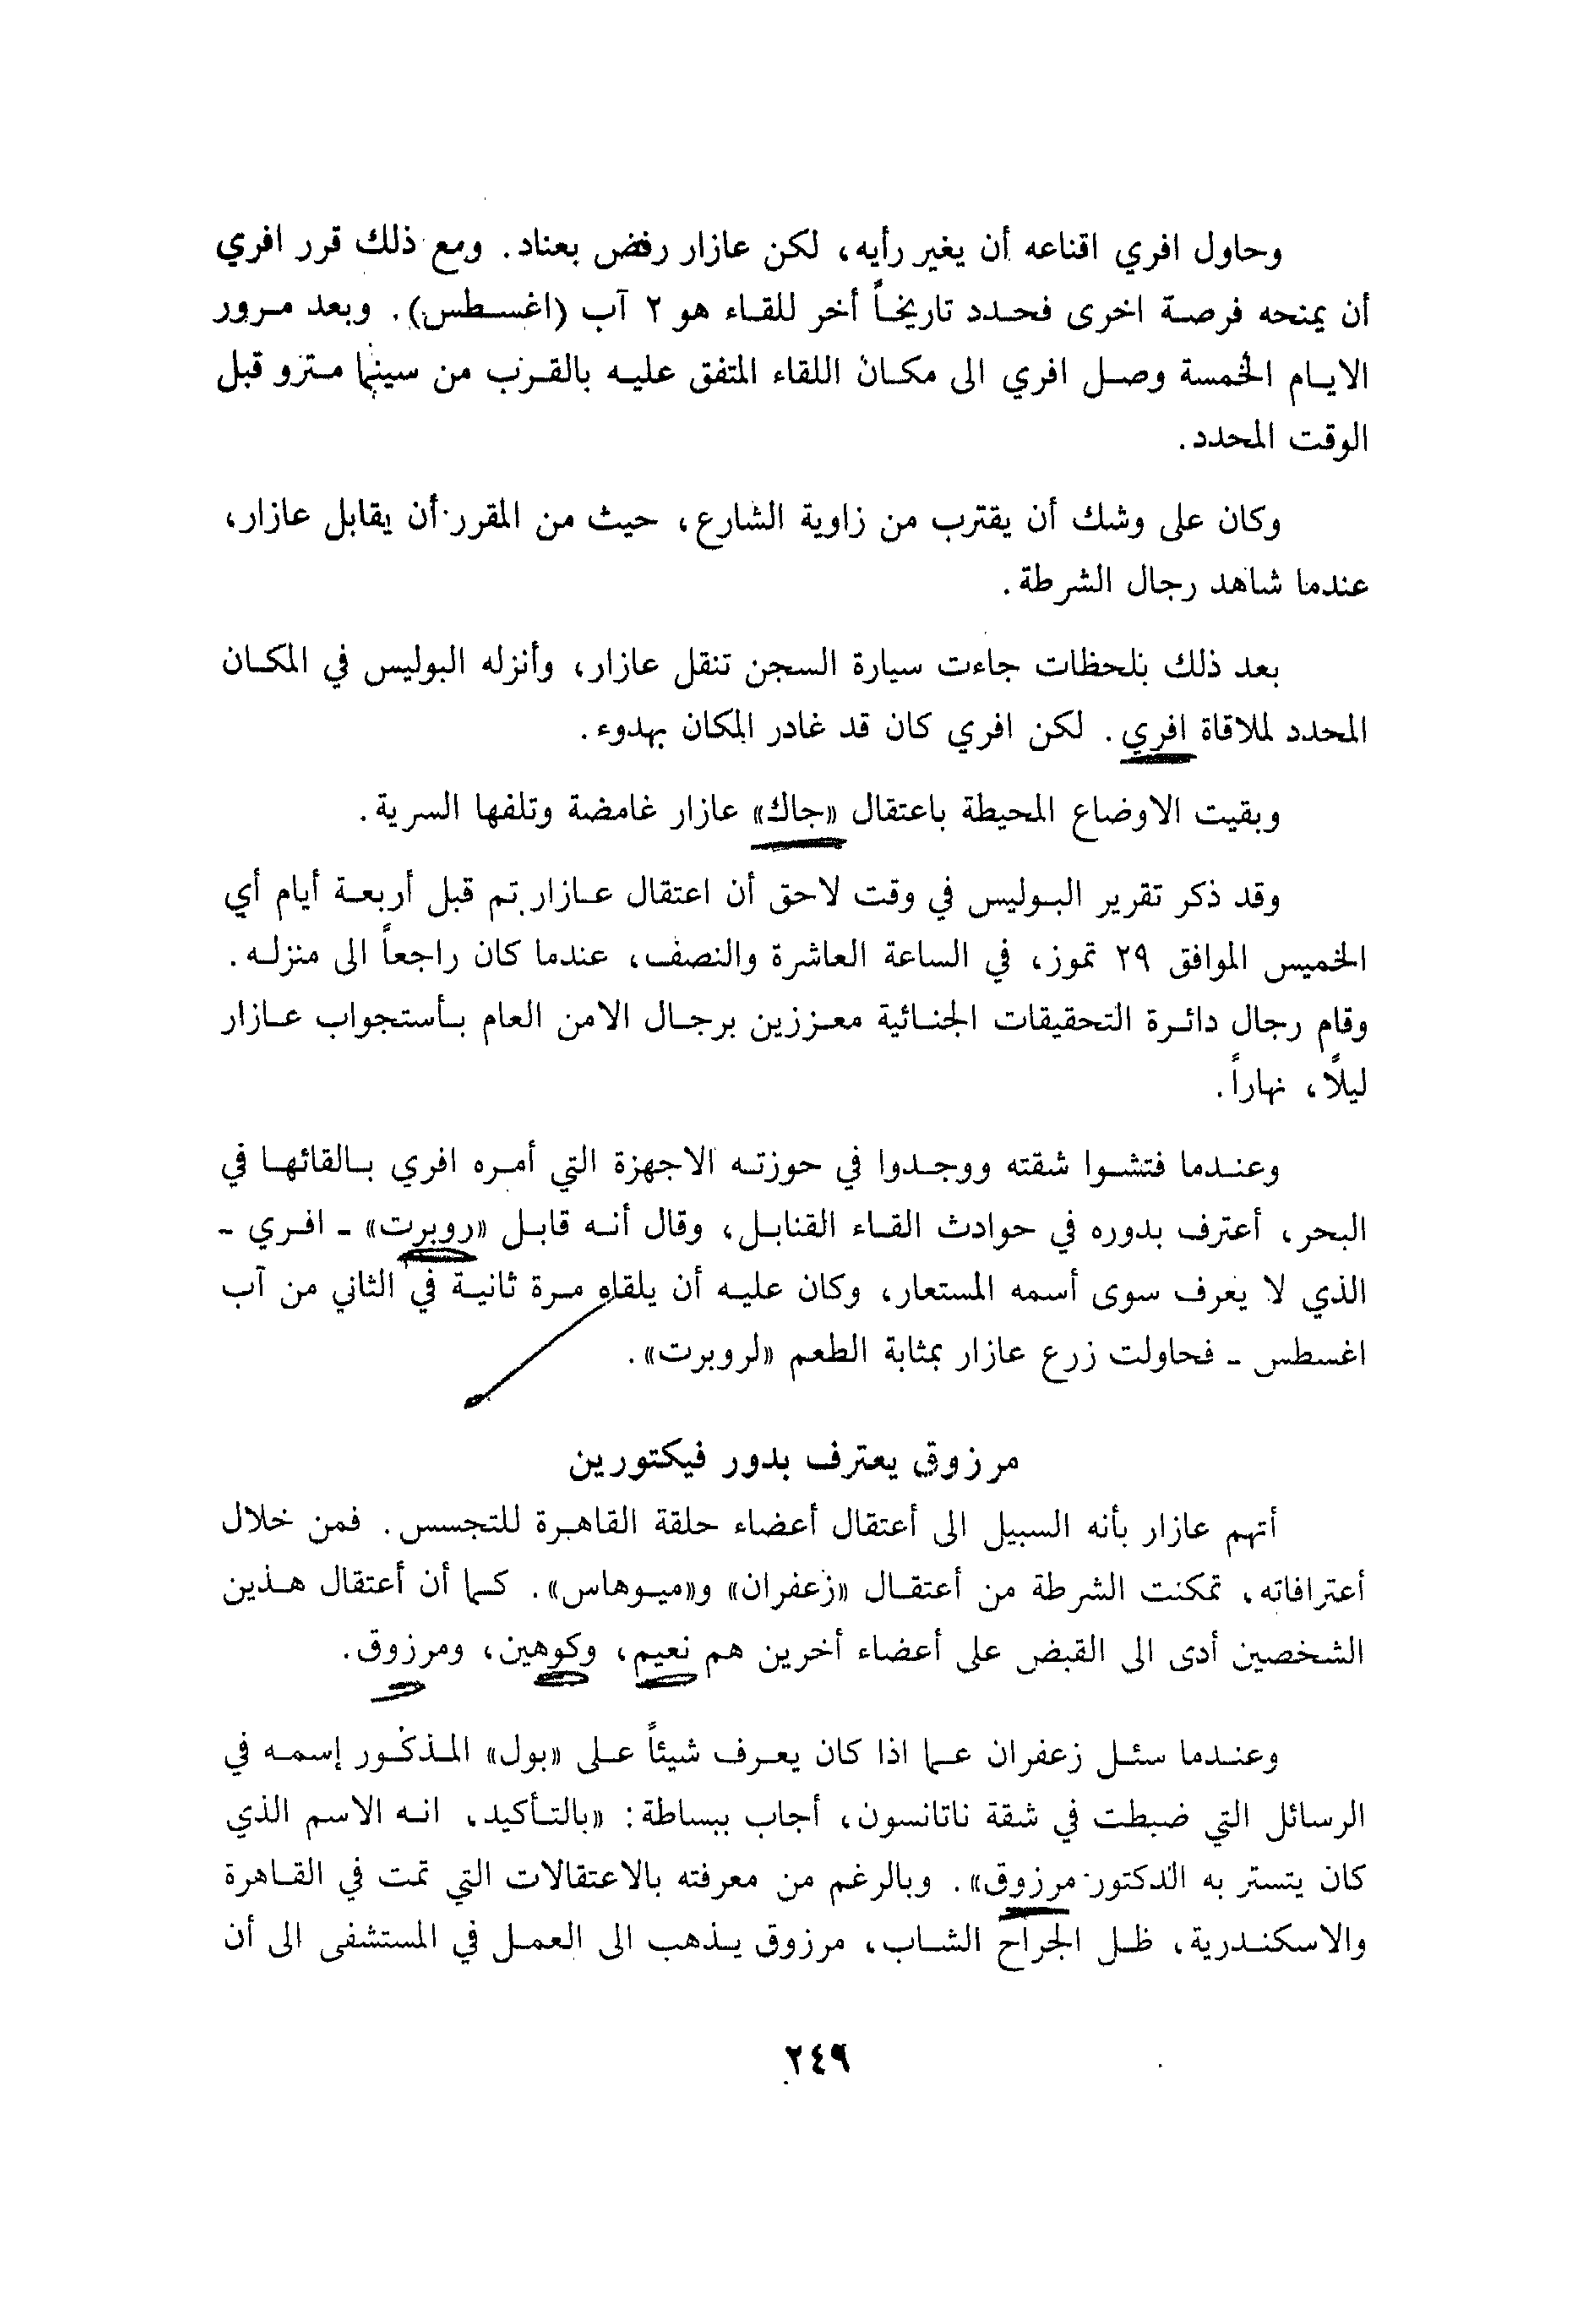 وحاول افري اقناعه أن يغير رأيه، لكن عازار رفض بعناد. ومع ذلك قرر افري
أن يمنحه فرصة اخرى فحدد تاريخاً أخر للقاء هو ٢ آب (اغسطس). وبعد مرور
الايام الخمسة وصل افري الى مكان اللقاء المتفق عليه بالقرب من سينما مترو قبل
الوقت المحدد.
وكان على وشك أن يقترب من زاوية الشارع، حيث من المقرر أن يقابل عازار،
عندما شاهد رجال الشرطة.
بعد ذلك بلحظات جاءت سيارة السجن تنقل عازار، وأنزله البوليس في المكان
المحدد لملاقاة افري. لكن افري كان قد غادر المكان بهدوء.
وبقيت الاوضاع المحيطة باعتقال «جاك» عازار غامضة وتلفها السرية.
وقد ذكر تقرير البوليس في وقت لاحق أن اعتقال عازار تم قبل أربعة أيام أي
الخميس الموافق ٢٩ تموز، في الساعة العاشرة والنصف، عندما كان راجعاً الى منزله.
وقام رجال دائرة التحقيقات الجنائية معززين برجال الامن العام بأستجواب عازار
ليلًا، نهاراً.
وعندما فتشوا شقته ووجدوا في حوزته الاجهزة التي أمره افري بالقائها في
البحر، أعترف بدوره في حوادث القاء القنابل، وقال أنه قابل «روبرت» - افري -
الذي لا يعرف سوى أسمه المستعار، وكان عليه أن يلقاه مرة ثانية في الثاني من آب
اغسطس - فحاولت زرع عازار بمثابة الطعم «لروبرت».
مرزوق يعترف بدور فيكتورين
أتهم عازار بأنه السبيل الى أعتقال أعضاء حلقة القاهرة للتجسس. فمن خلال
أعترافاته، تمكنت الشرطة من أعتقال «زعفران» و«ميوهاس». كما أن أعتقال هذين
الشخصين أدى الى القبض على أعضاء أخرين هم نعيم، وكوهين، ومرزوق.
وعندما سئل زعفران عما اذا كان يعرف شيئاً على «بول» المذكور إسمه في
الرسائل التي ضبطت في شقة ناتانسون، أجاب ببساطة: «بالتأكيد، انه الاسم الذي
كان يتستر به الدكتور مرزوق». وبالرغم من معرفته بالاعتقالات التي تمت في القاهرة
والاسكندرية، ظل الجراح الشاب، مرزوق يذهب الى العمل في المستشفى الى أن
٢٤٩